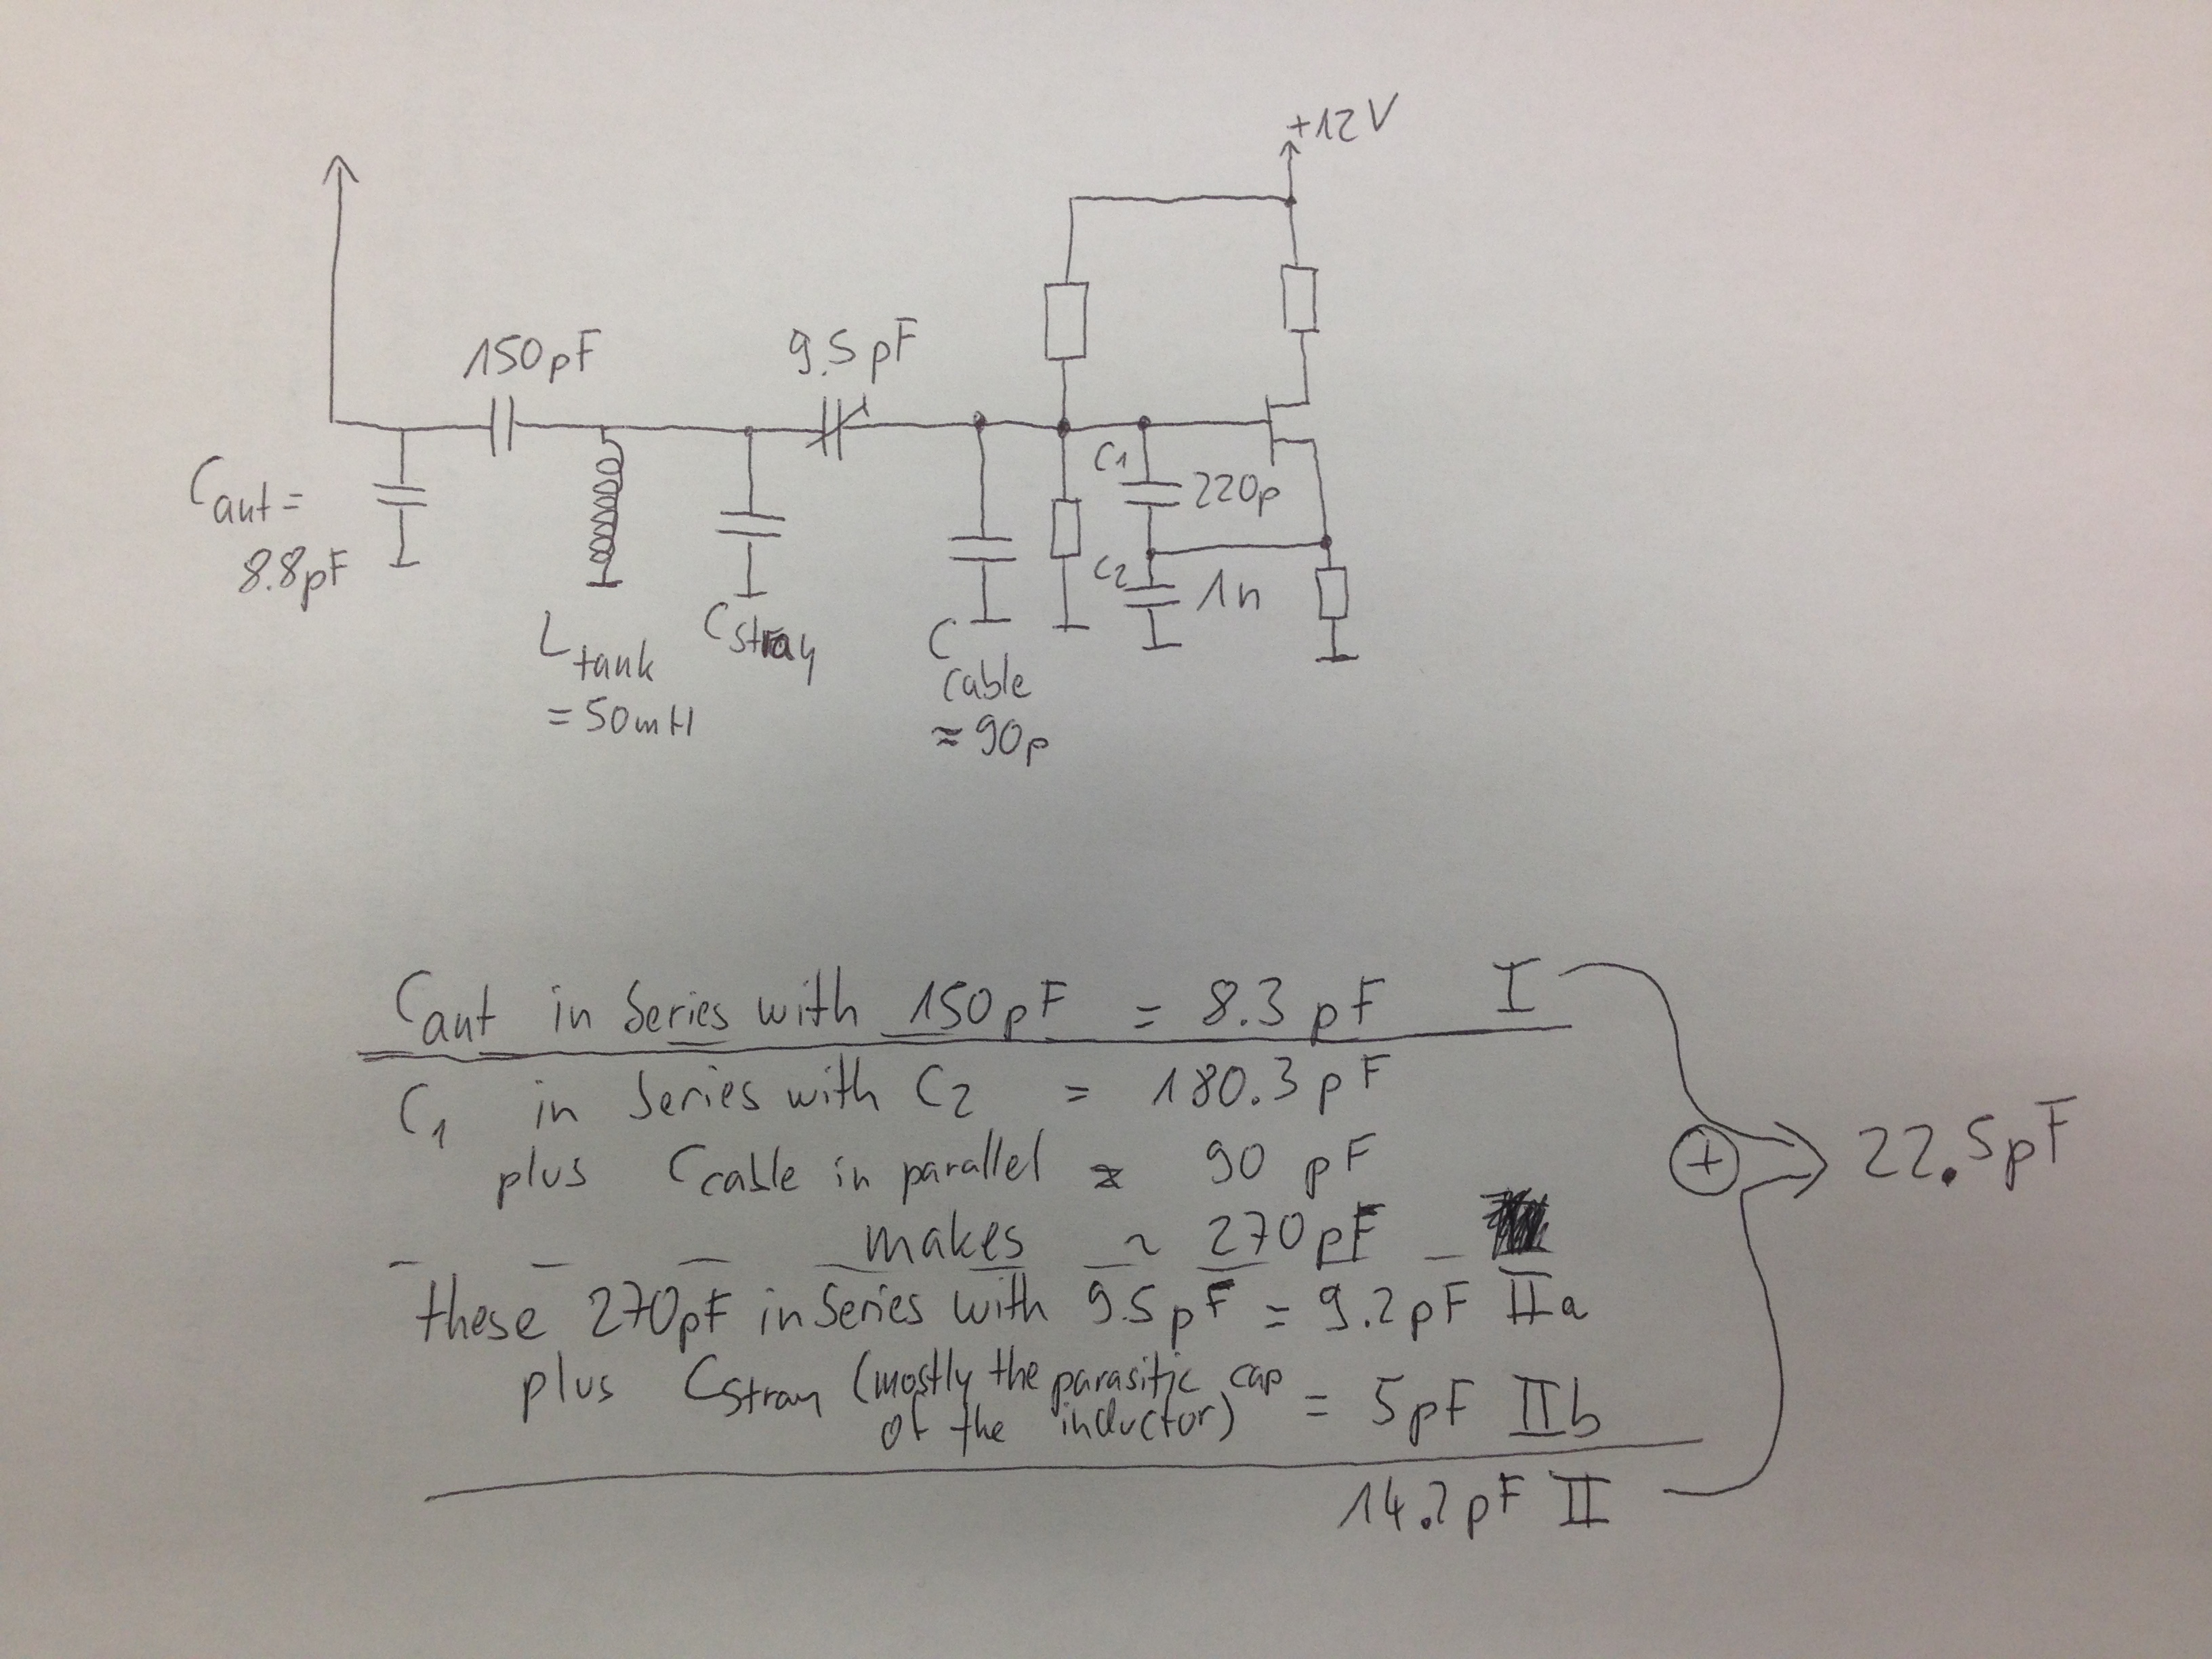 +12V
150pF
9.5pF
C1
220p
Caut =
8.8pF
C2
1n
Ltank
= 50mH
Cstray
Ccable
≈ 90p
Caut in Series with 150pF = 8.3 pF I
C1 in Series with C2 = 180.3 pF
plus Ccable in parallel ≈ 90 pF
makes ~ 270pF
these 270pF in Series with 9.5pF = 9.2pF IIa
plus Cstray (mostly the parasitic cap
of the inductor) = 5pF IIb
14.2pF II
+
22.5pF